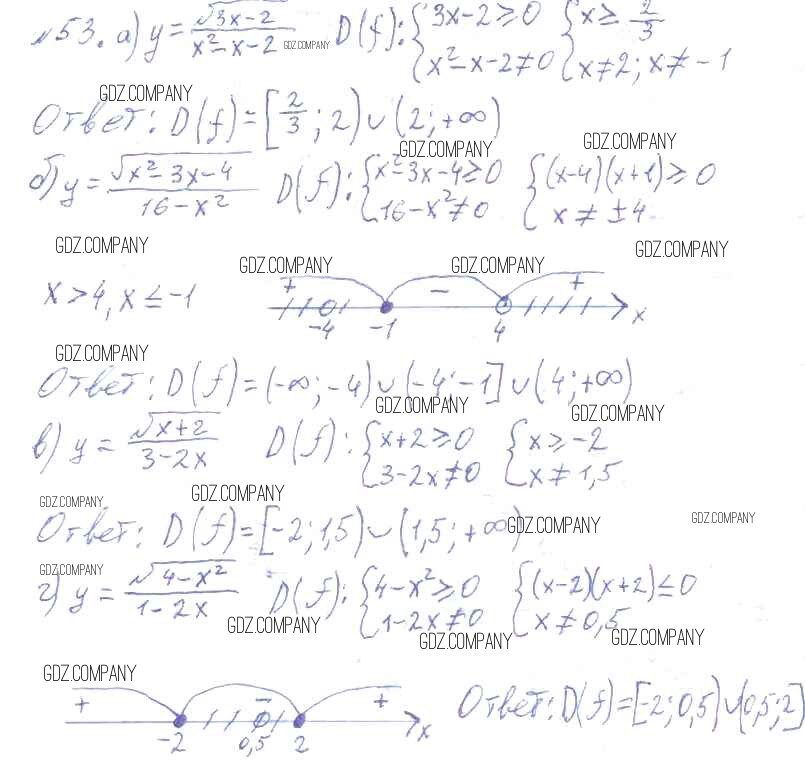 №53. а) y = √(3x-2) / (x²-x-2) GDZ.COMPANY D(f): { 3x-2 ≥ 0 { x ≥ 2/3
x²-x-2 ≠ 0 x ≠ 2; x ≠ -1
GDZ.COMPANY
Ответ: D(f) = [2/3; 2) ∪ (2; +∞)
GDZ.COMPANY GDZ.COMPANY
б) y = √(x²-3x-4) / (16-x²) D(f): { x²-3x-4 ≥ 0 { (x-4)(x+1) ≥ 0
16-x² ≠ 0 x ≠ ±4
GDZ.COMPANY GDZ.COMPANY
GDZ.COMPANY GDZ.COMPANY
x > 4, x ≤ -1 + − + x
-4 -1 4
GDZ.COMPANY
Ответ: D(f) = (-∞; -4) ∪ (-4; -1] ∪ (4; +∞)
GDZ.COMPANY GDZ.COMPANY
в) y = √(x+2) / (3-2x) D(f): { x+2 ≥ 0 { x ≥ -2
3-2x ≠ 0 x ≠ 1,5
GDZ.COMPANY GDZ.COMPANY
Ответ: D(f) = [-2; 1,5) ∪ (1,5; +∞) GDZ.COMPANY GDZ.COMPANY
GDZ.COMPANY
г) y = √(4-x²) / (1-2x) D(f): { 4-x² ≥ 0 { (x-2)(x+2) ≤ 0
1-2x ≠ 0 x ≠ 0,5
GDZ.COMPANY GDZ.COMPANY GDZ.COMPANY
GDZ.COMPANY
+ − + x
-2 0,5 2
Ответ: D(f) = [-2; 0,5) ∪ (0,5; 2]